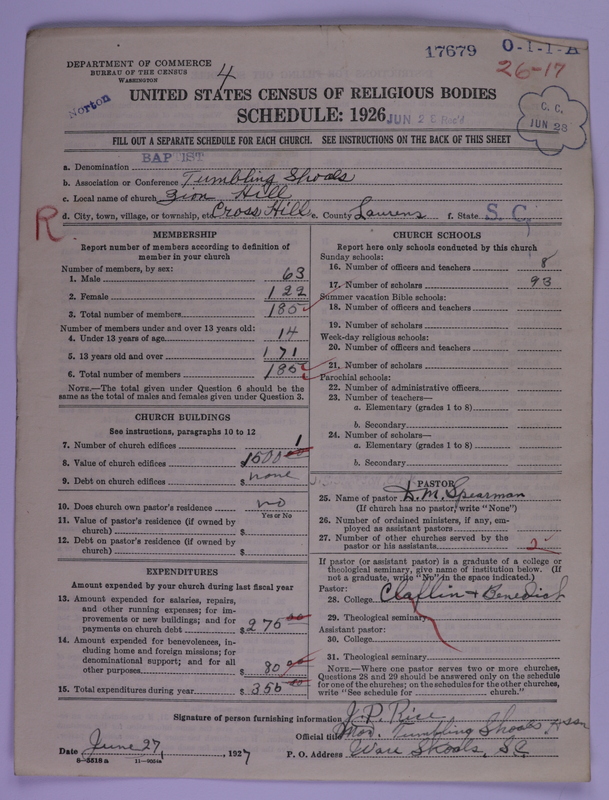 DEPARTMENT OF COMMERCE
BUREAU OF THE CENSUS
WASHINGTON
4
17679
O-1-1-A
26-17
Norton
UNITED STATES CENSUS OF RELIGIOUS BODIES
SCHEDULE: 1926
JUN 2 Rec'd
C. C.
JUN 28
FILL OUT A SEPARATE SCHEDULE FOR EACH CHURCH. SEE INSTRUCTIONS ON THE BACK OF THIS SHEET
a. Denomination BAPTIST
b. Association or Conference Tumbling Shoals
c. Local name of church Zion Hill
d. City, town, village, or township, etc. Cross Hill e. County Laurens f. State S. C.
R
MEMBERSHIP
Report number of members according to definition of
member in your church
Number of members, by sex:
1. Male 63
2. Female 122
3. Total number of members 185
Number of members under and over 13 years old:
4. Under 13 years of age 14
5. 13 years old and over 171
6. Total number of members 185
NOTE.—The total given under Question 6 should be the
same as the total of males and females given under Question 3.
CHURCH BUILDINGS
See instructions, paragraphs 10 to 12
7. Number of church edifices 1
8. Value of church edifices 1500 00
9. Debt on church edifices $ none
10. Does church own pastor's residence no
Yes or No
11. Value of pastor's residence (if owned by
church) $
12. Debt on pastor's residence (if owned by
church) $
EXPENDITURES
Amount expended by your church during last fiscal year
13. Amount expended for salaries, repairs,
and other running expenses; for im-
provements or new buildings; and for
payments on church debt $ 276 00
14. Amount expended for benevolences, in-
cluding home and foreign missions; for
denominational support; and for all
other purposes $ 80 00
15. Total expenditures during year $ 356 00
CHURCH SCHOOLS
Report here only schools conducted by this church
Sunday schools:
16. Number of officers and teachers 8
17. Number of scholars 93
Summer vacation Bible schools:
18. Number of officers and teachers
19. Number of scholars
Week-day religious schools:
20. Number of officers and teachers
21. Number of scholars
Parochial schools:
22. Number of administrative officers
23. Number of teachers—
a. Elementary (grades 1 to 8)
b. Secondary
24. Number of scholars—
a. Elementary (grades 1 to 8)
b. Secondary
PASTOR
25. Name of pastor D. M. Spearman
(If church has no pastor, write "None")
26. Number of ordained ministers, if any, em-
ployed as assistant pastors
27. Number of other churches served by the
pastor or his assistants 2
If pastor (or assistant pastor) is a graduate of a college or
theological seminary, give name of institution below. (If
not a graduate, write "No" in the space indicated.)
Pastor:
28. College Claflin + Benedict
29. Theological seminary
Assistant pastor:
30. College
31. Theological seminary
NOTE.—Where one pastor serves two or more churches,
Questions 28 and 29 should be answered only on the schedule
for one of the churches; on the schedules for the other churches,
write "See schedule for church."
Signature of person furnishing information J. P. Rice
Official title Mod. Tumbling Shoals Asson
Date June 27, 1927 P. O. Address Ware Shoals, SC
8—5518 a 11—9054a